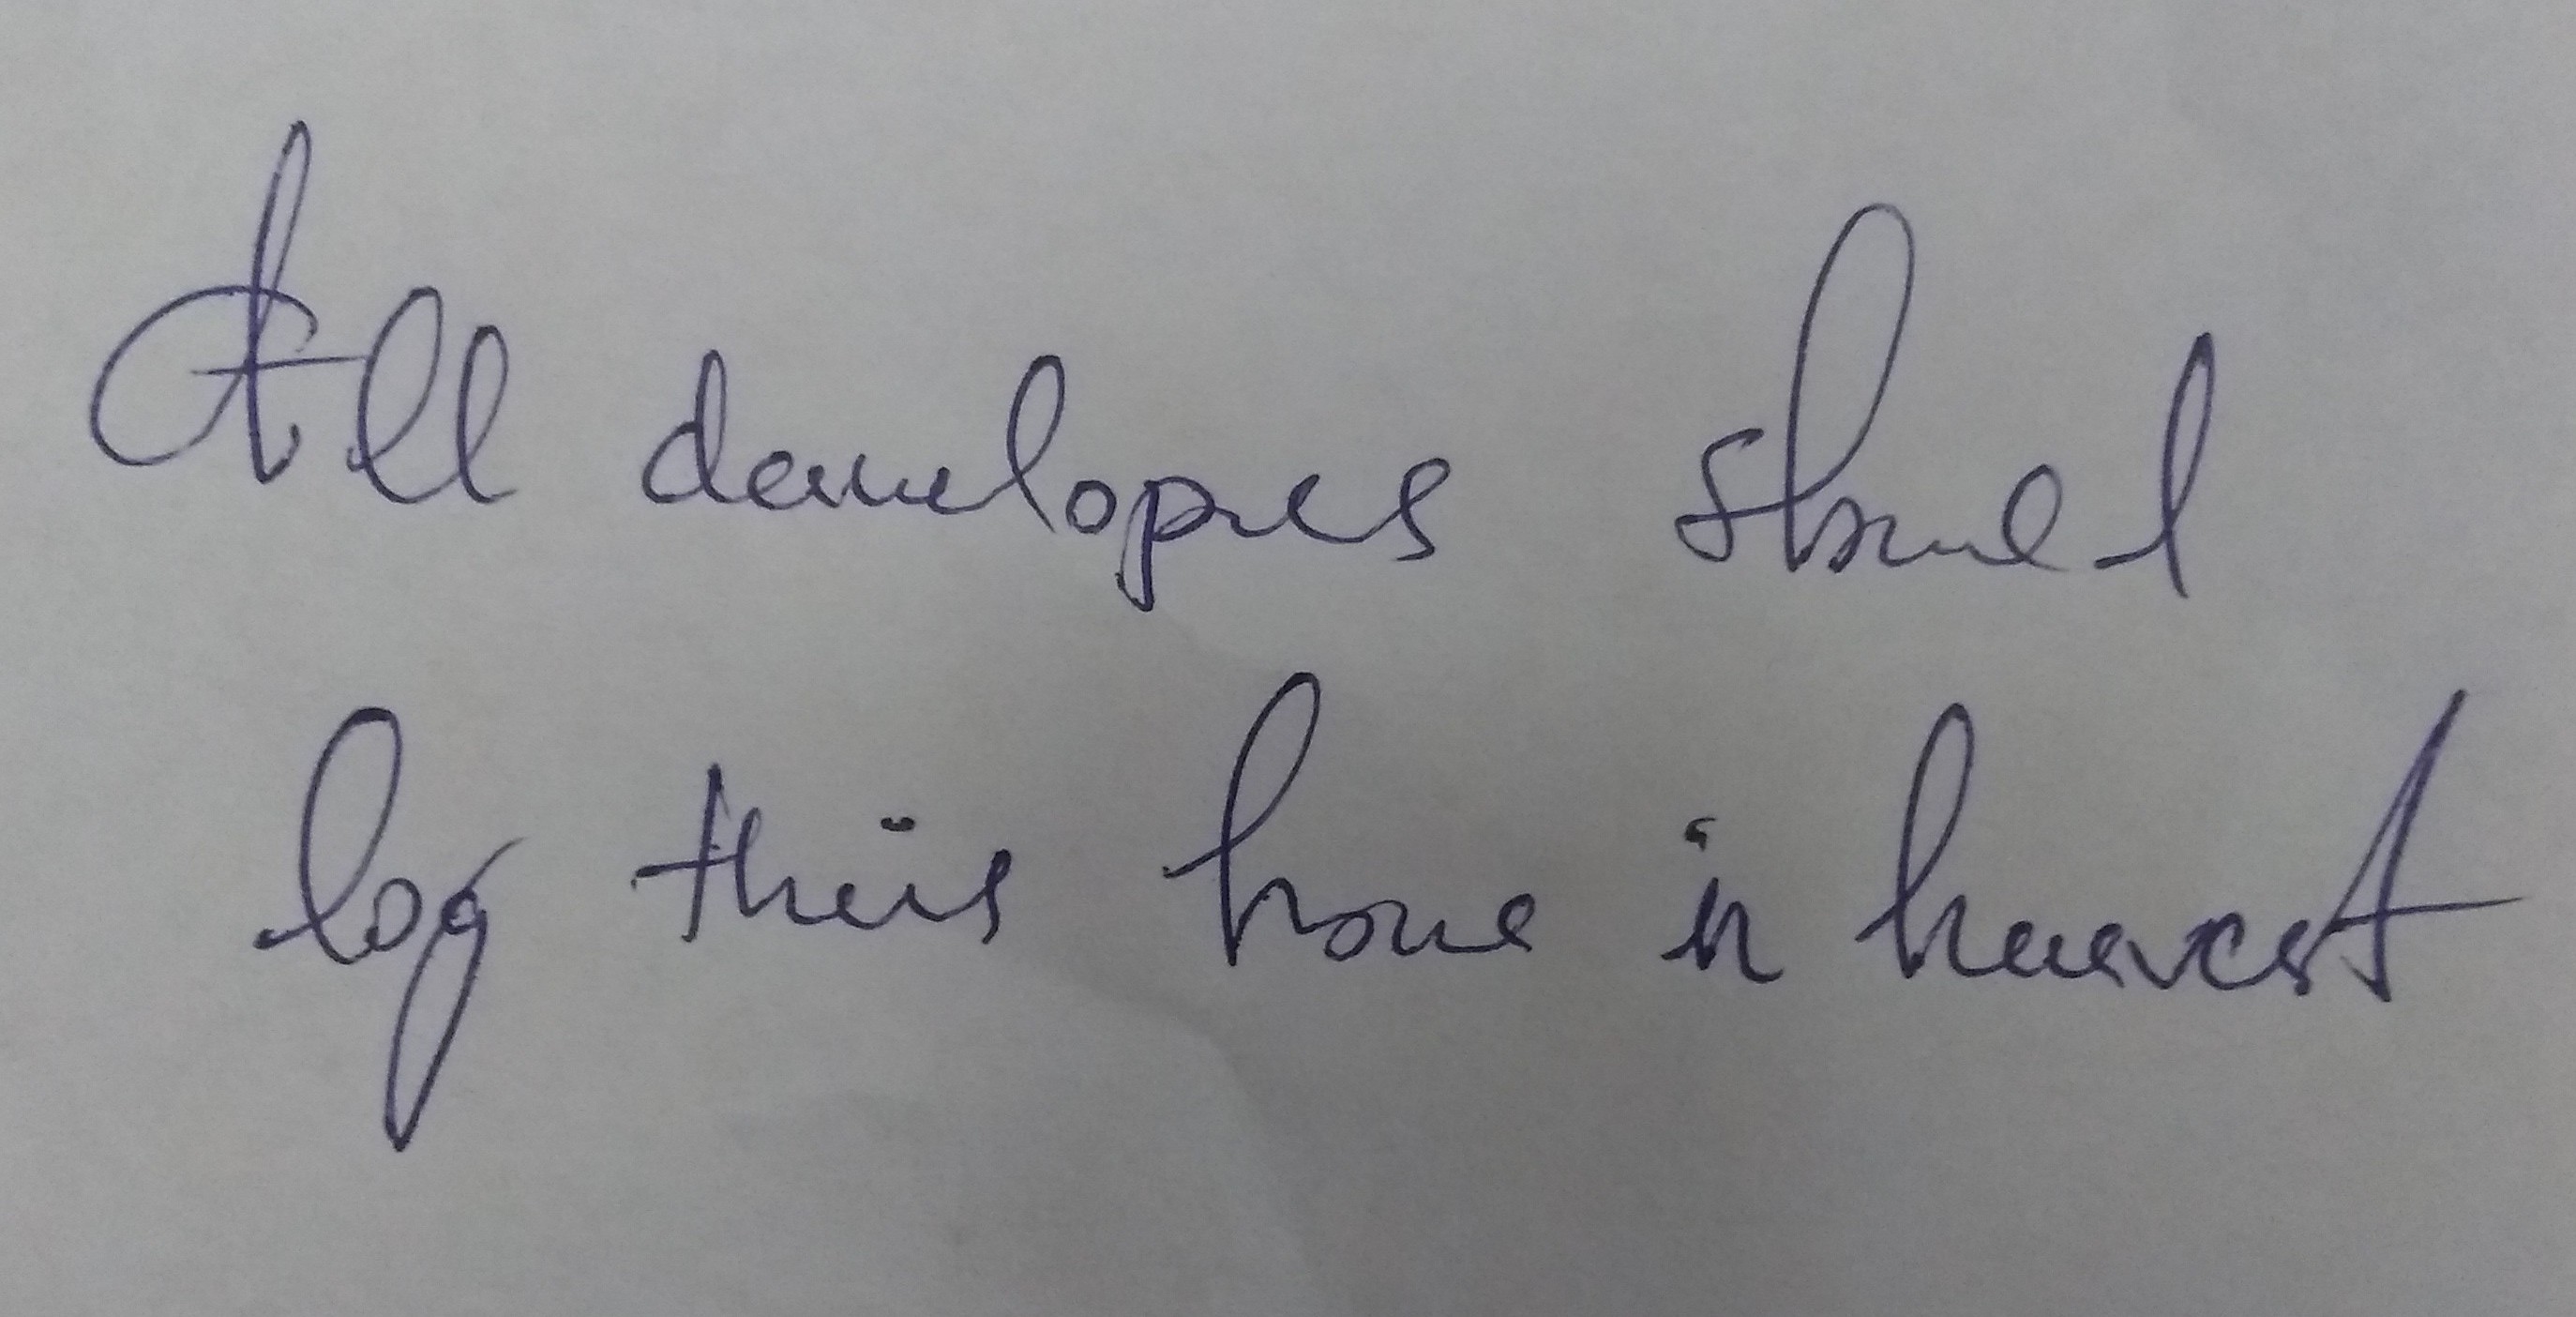 All developers should
log their hours in harvest